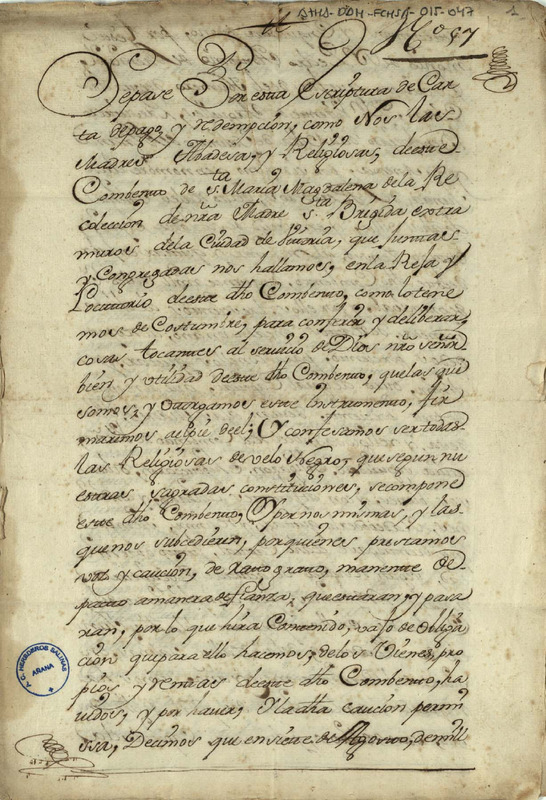 ATHA-DDH-FCHSA-015-047
1
N.º 57
Sepase Por esta Escriptura de Car
ta depago, y redempcion, como Nos las
Madres Abadesa, y Religiosas, deeste
Combento de s.ta Maria Magdalena de la Re
coleccion de nrã Madre s.ta Brigida extra
muros dela Ciudad de Vitoria, que Juntas
y Congregadas nos hallamos, enla Reja y
Locutorio deeste dho Combento, como lo tene
mos de Costumbre, para conferir y deliberar,
cosas tocantes al servicio de Dios nrõ señor
bien y utilidad deeste dho Combento, quelas que
somos, y otorgamos este Instrumento, fir
maremos alpie deel; Y confesamos ser todas
las Religiosas de velo Negro, que segun nu
estras sagradas constituciones, secompone
este dho Combento, Y por nos mismas, y las
quenos subcedieren, por quienes prestamos
voz y caucion, de rato grato, manente
pacto amanera de fianza, que estaran, y pasa
ran, por lo que hira Contenido, vajo de obliga
cion que para ello hacemos, delos Vienes, pro
pios y rentas deeste dho Combento, ha
uidos, y por hauer, Y la dha caucion permi
sa, Decimos que en siete de Agosto, de mill
Y C. HEREDEROS SALINAS
AÑANA